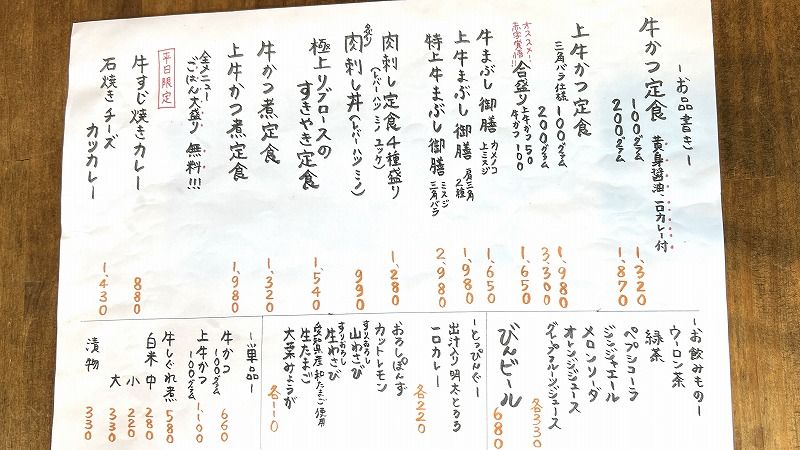 ーお品書きー
牛かつ定食 黄身醤油、一口カレー付
100グラム 1,320
200グラム 1,870
上牛かつ定食
三角バラ仕様 100グラム 1,980
200グラム 3,300
オススメ!
赤字覚悟!!
合盛り 上牛かつ50 牛かつ100 1,650
牛まぶし御膳 カメノコ 上ミスジ 1,650
上牛まぶし御膳 肩三角 2種 1,980
特上牛まぶし御膳 ミスジ 三角バラ 2,980
肉刺し定食4種盛り
(レバー ハツ ミノ ユッケ) 1,280
炙り
肉刺し丼(レバー ハツ ミノ) 990
極上リブロースの
すきやき定食 1,540
牛かつ煮定食 1,320
上牛かつ煮定食 1,980
全メニュー
ごはん大盛り無料!!!
平日限定
牛すじ焼きカレー 880
石焼きチーズ
カツカレー 1,430
ーお飲みものー
ウーロン茶
緑茶
ペプシコーラ
ジンジャエール
メロンソーダ
オレンジジュース
グレープフルーツジュース
各330
びんビール 680
ーとっぴんぐー
出汁入り明太とろろ
一口カレー
各220
おろしぽんず
カットレモン
すりおろし
山わさび
すりおろし
生わさび
愛知県産和たまご使用
生たまご
大葉みょうが
各110
ー単品ー
牛かつ
100グラム 660
上牛かつ
100グラム 1,100
牛しぐれ煮 580
白米 中 280
小 220
大 330
漬物 330